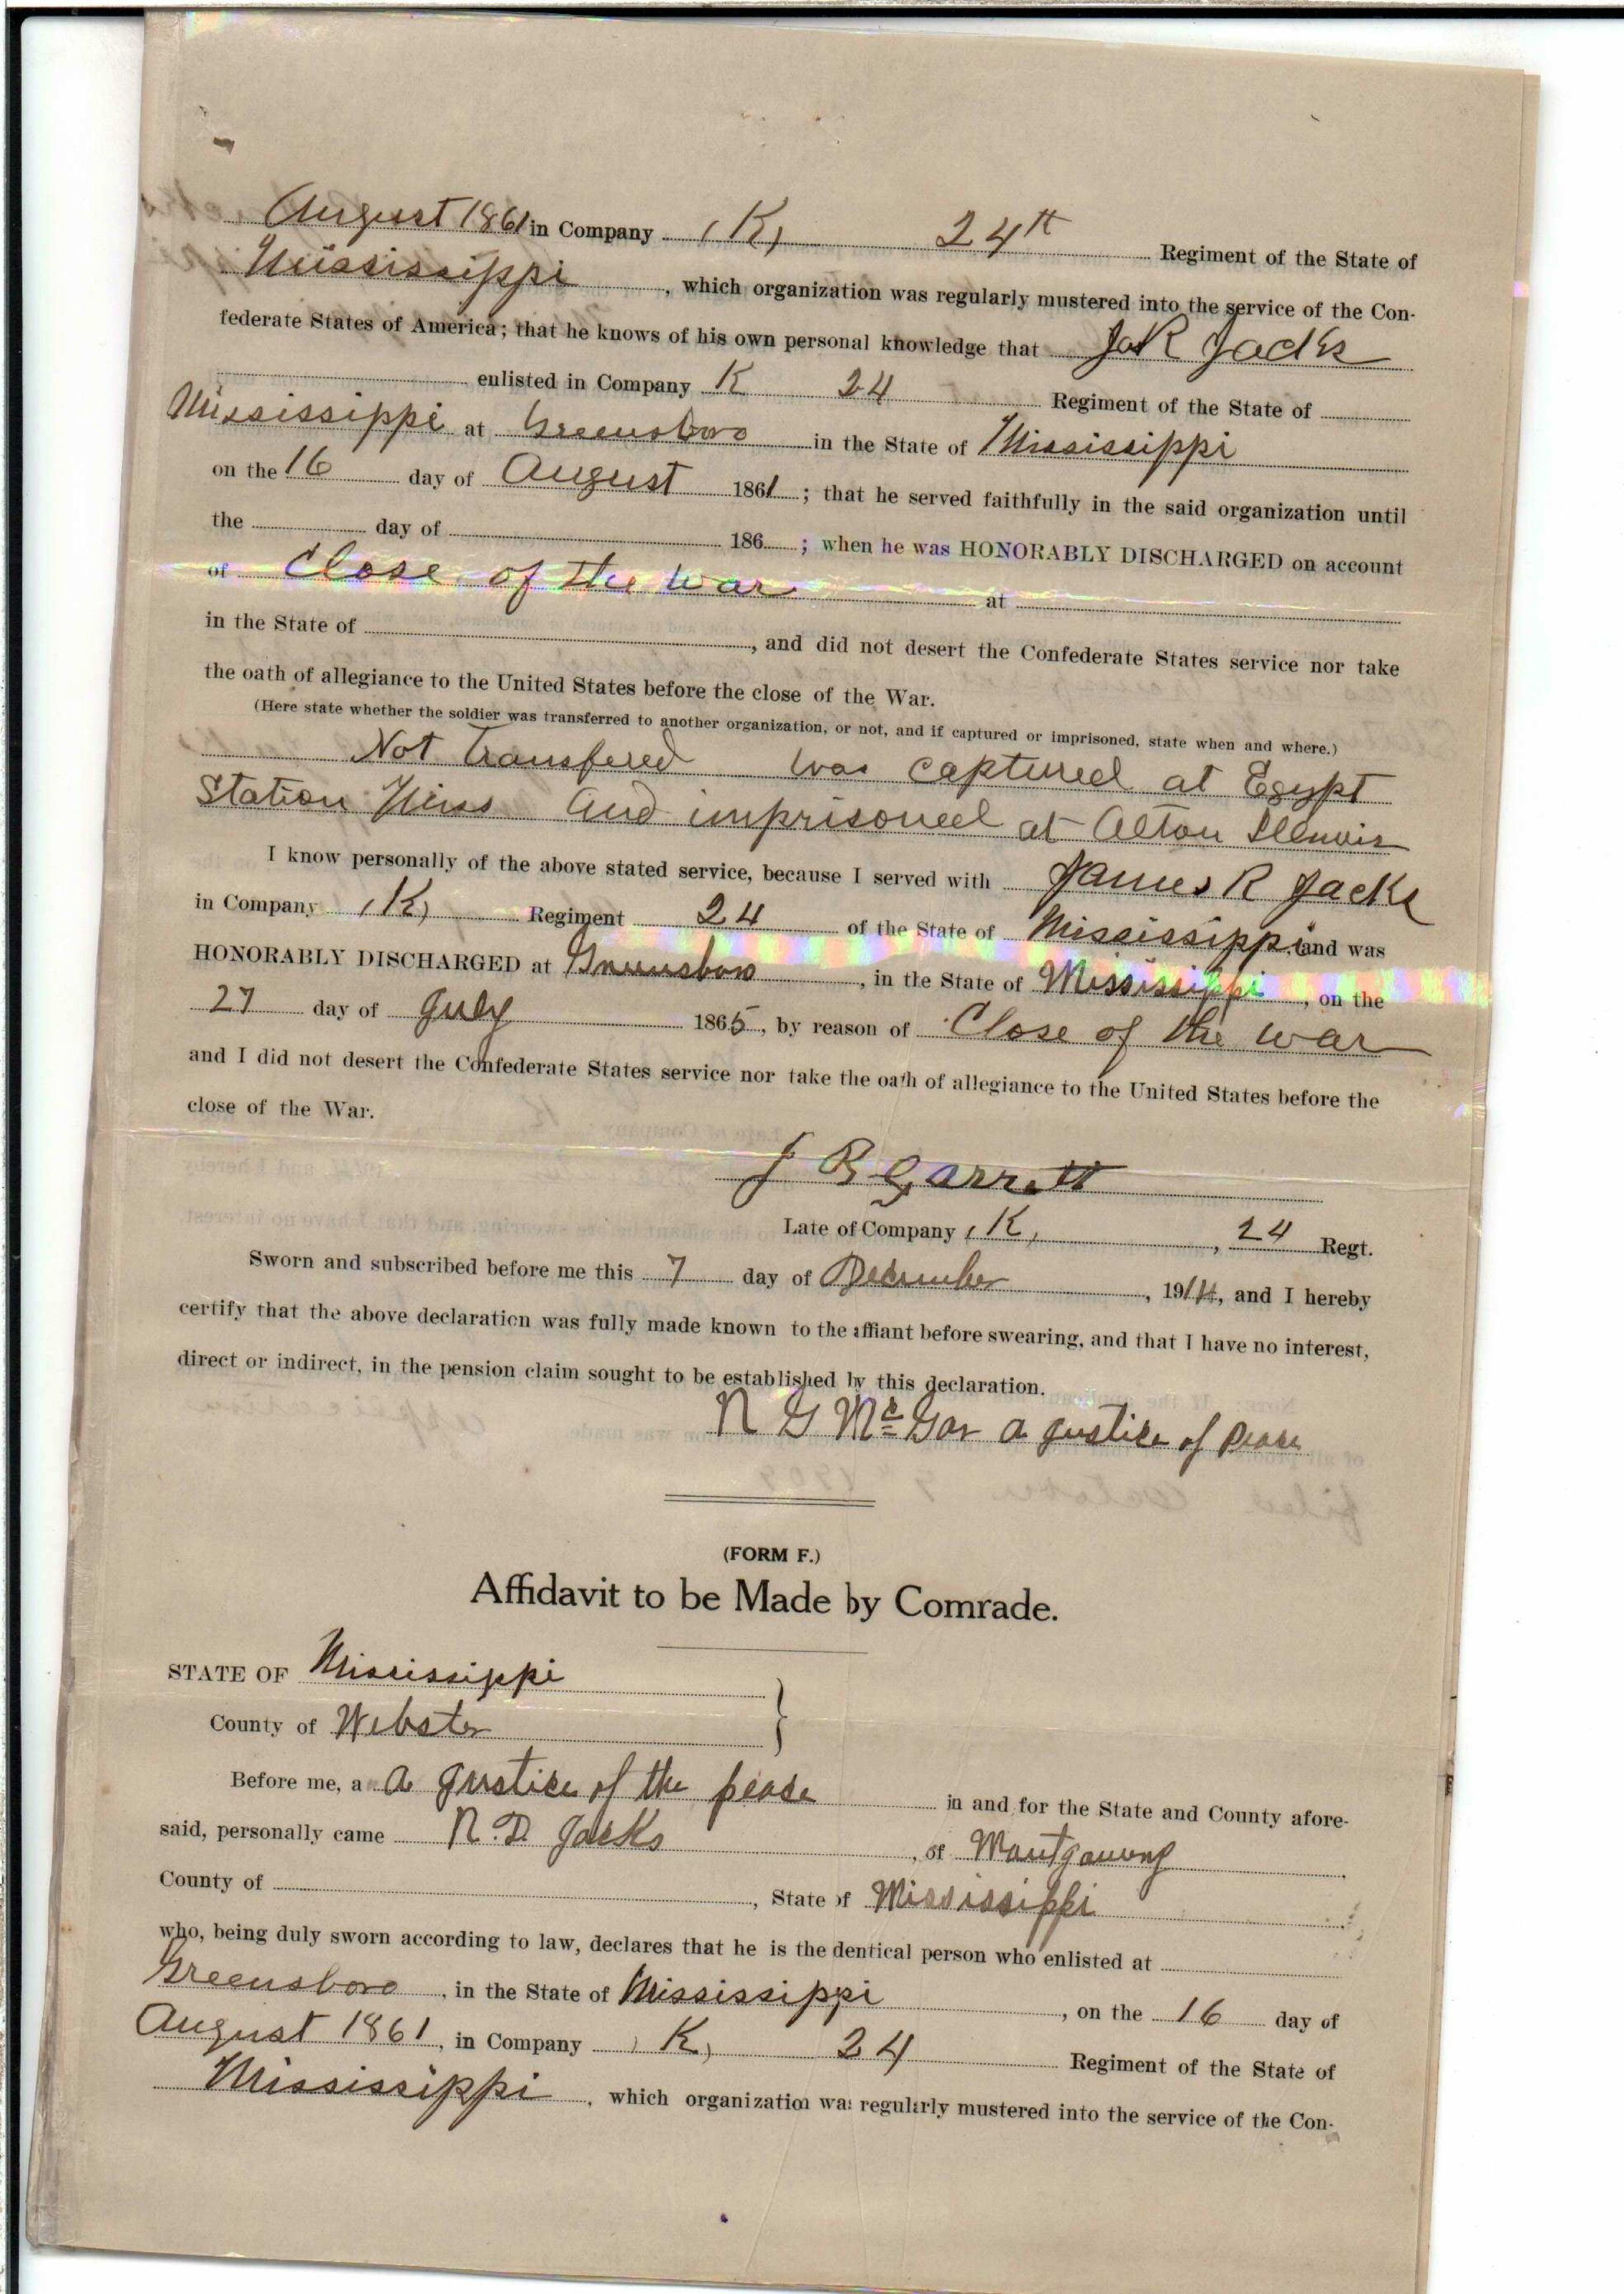 August 1861 in Company (K) 24th Regiment of the State of
Mississippi, which organization was regularly mustered into the service of the Con-
federate States of America; that he knows of his own personal knowledge that JaR Jacks
enlisted in Company K 24 Regiment of the State of
Mississippi at Greensboro in the State of Mississippi
on the 16 day of August 1861; that he served faithfully in the said organization until
the day of 186 ; when he was HONORABLY DISCHARGED on account
of Close of the war at
in the State of , and did not desert the Confederate States service nor take
the oath of allegiance to the United States before the close of the War.
(Here state whether the soldier was transferred to another organization, or not, and if captured or imprisoned, state when and where.)
Not Transfered was captured at Egypt
Station Miss and imprisoned at Alton Illinois
I know personally of the above stated service, because I served with James R Jacks
in Company (K) Regiment 24 of the State of Mississippi, and was
HONORABLY DISCHARGED at Greensboro, in the State of Mississippi, on the
27 day of July 1865, by reason of Close of the war
and I did not desert the Confederate States service nor take the oath of allegiance to the United States before the
close of the War.
J B Garrett
Late of Company (K), 24 Regt.
Sworn and subscribed before me this 7 day of December, 1914, and I hereby
certify that the above declaration was fully made known to the affiant before swearing, and that I have no interest,
direct or indirect, in the pension claim sought to be established by this declaration.
N G McGar a justice of peace
(FORM F.)
Affidavit to be Made by Comrade.
STATE OF Mississippi
County of Webster
Before me, a a justice of the peace in and for the State and County afore-
said, personally came N. D. Jacks, of Montgomery
County of , State of Mississippi
who, being duly sworn according to law, declares that he is the dentical person who enlisted at
Greensboro, in the State of Mississippi, on the 16 day of
August 1861, in Company (K) 24 Regiment of the State of
Mississippi, which organization was regularly mustered into the service of the Con-